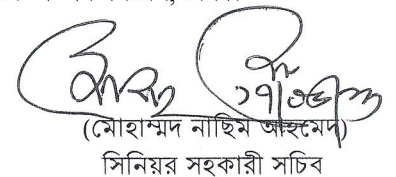 (মোহাম্মদ নাছিম আহমেদ)
সিনিয়র সহকারী সচিব